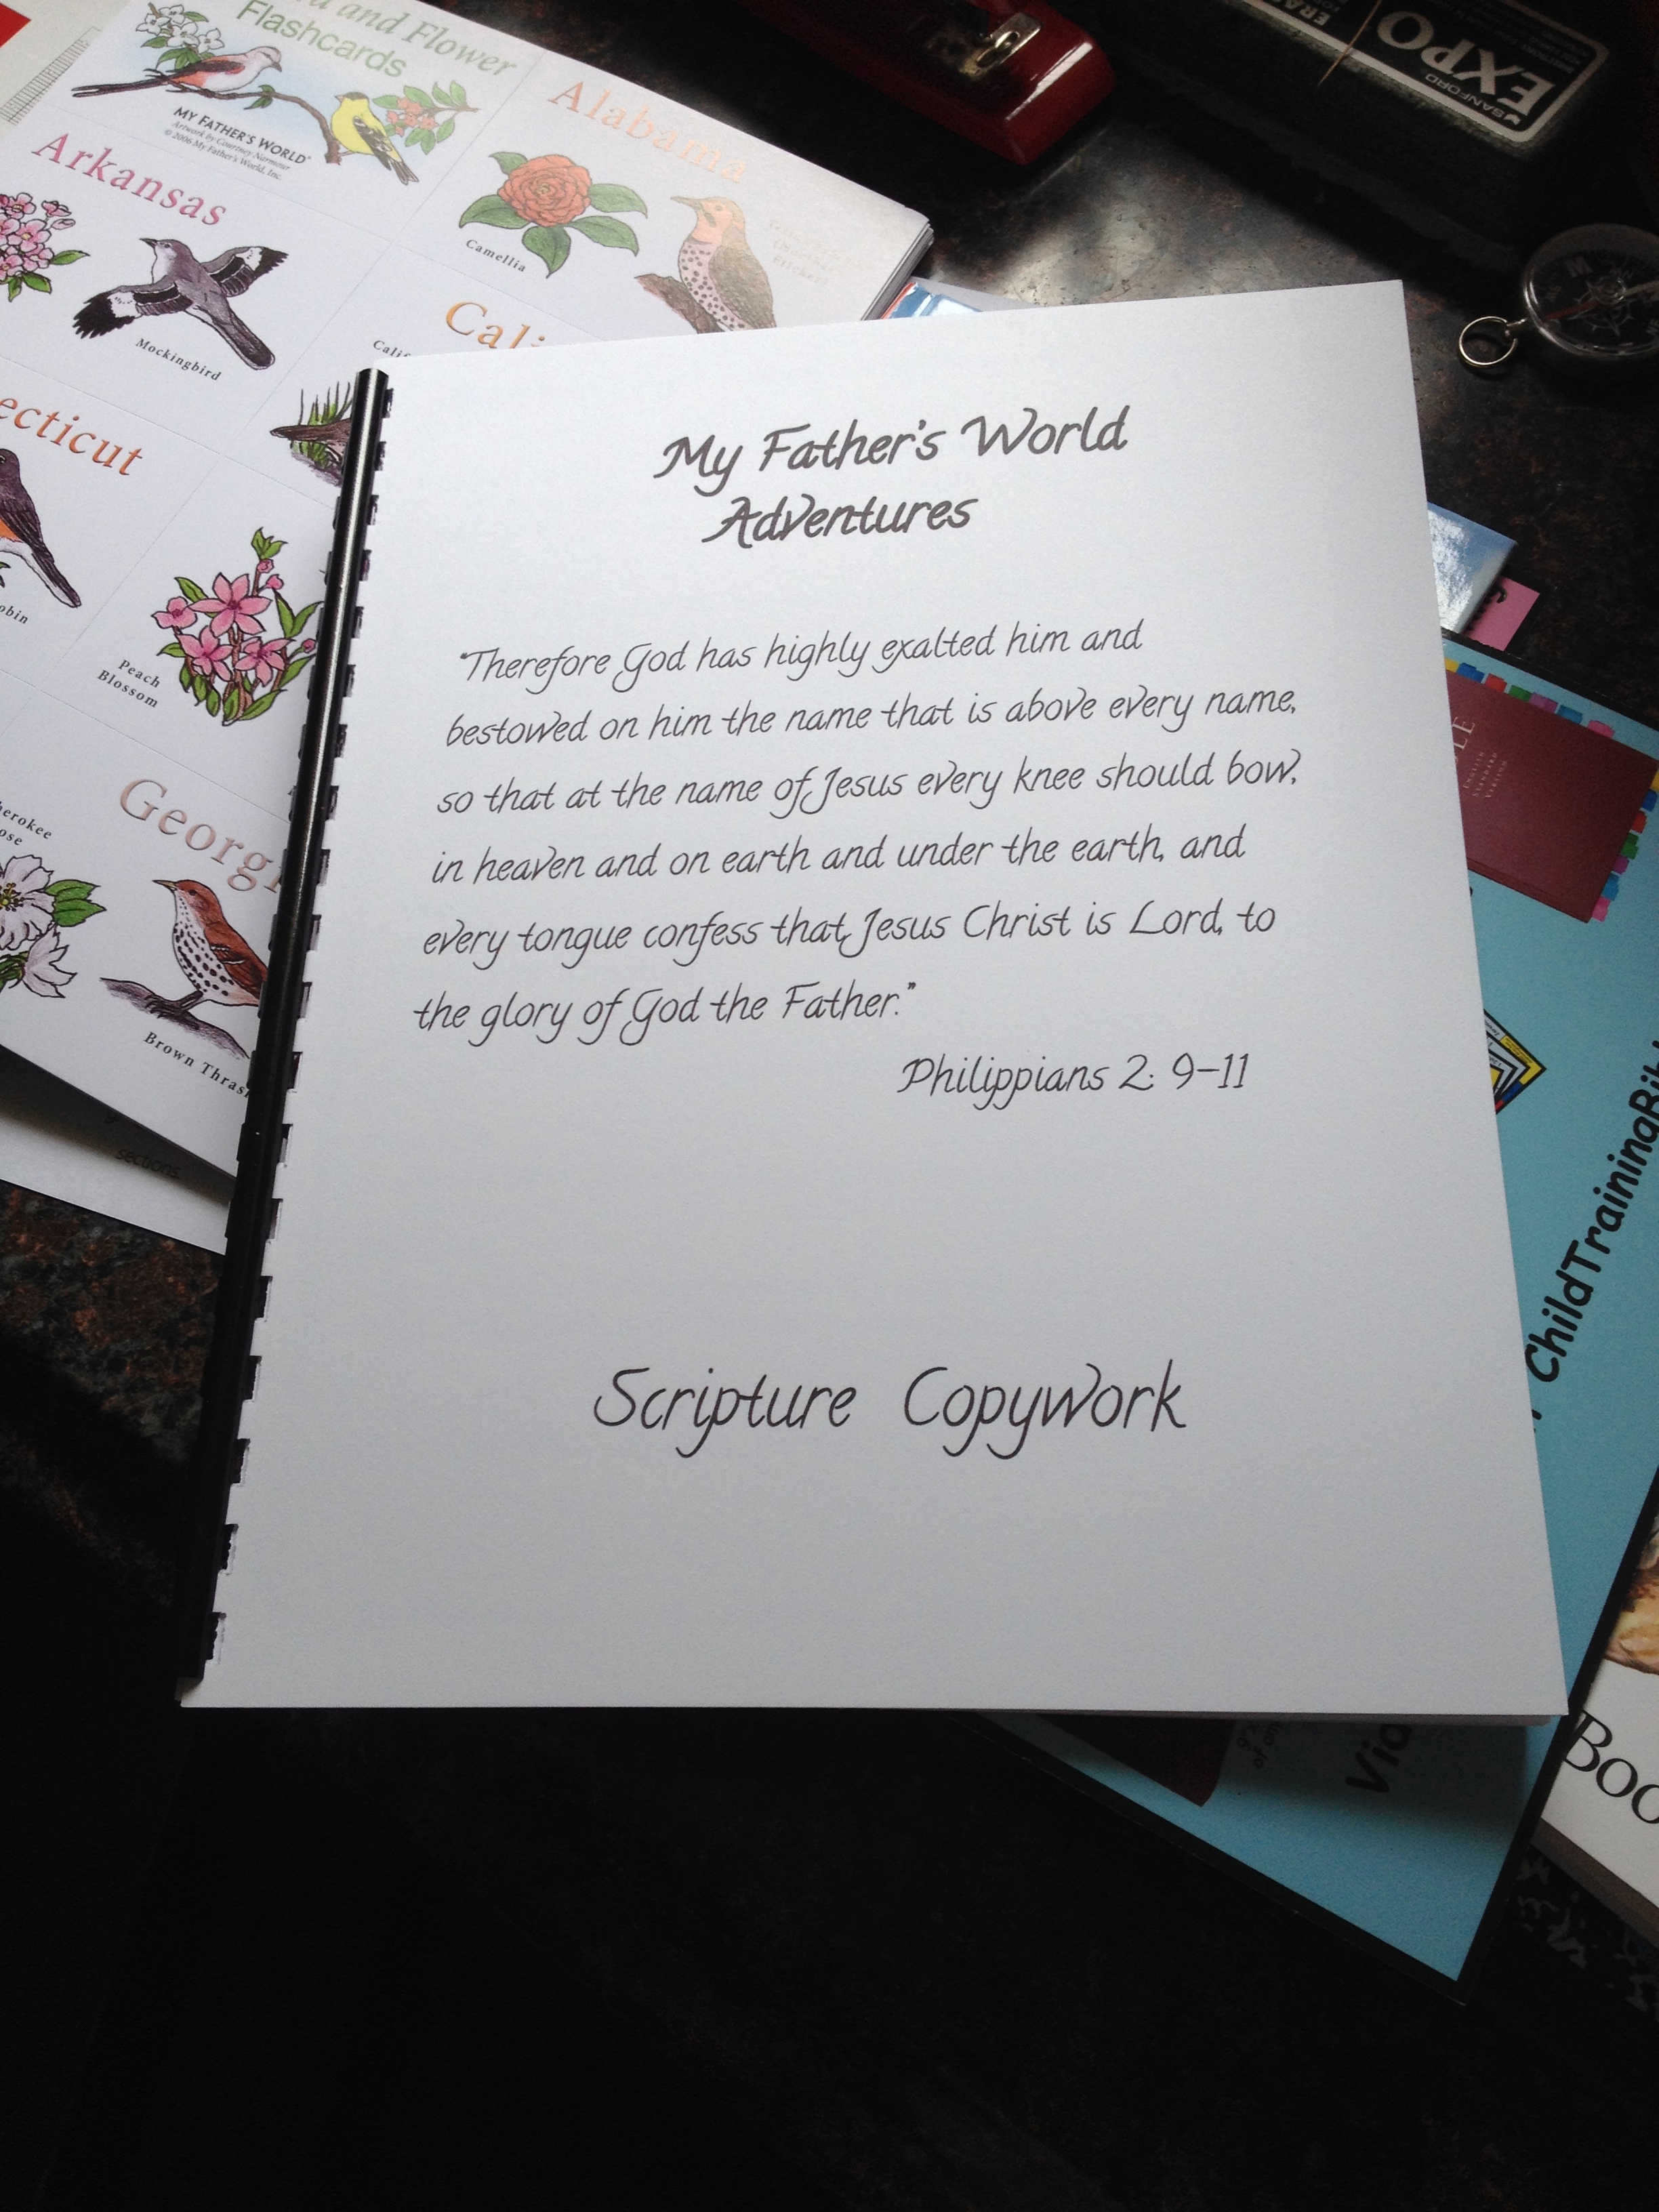 and Flower
Flashcards
MY FATHER'S WORLD®
Artwork by Courtney Narmour
© 2006 My Father's World, Inc.
Alabama
Camellia
Arkansas
Mockingbird
Peach
Blossom
Brown
EXPO
SANFORD
My Father's World
Adventures
"Therefore God has highly exalted him and
bestowed on him the name that is above every name,
so that at the name of Jesus every knee should bow,
in heaven and on earth and under the earth, and
every tongue confess that Jesus Christ is Lord, to
the glory of God the Father."
Philippians 2: 9-11
Scripture Copywork
ENGLISH
STANDARD
VERSION
sections.